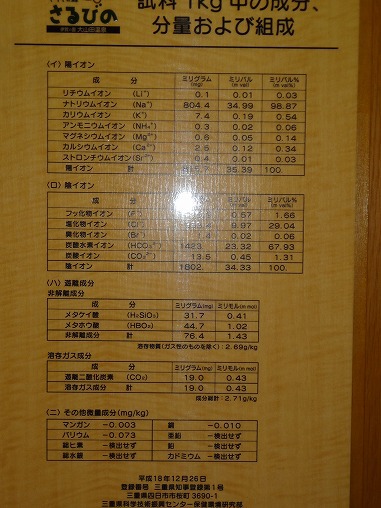 さるびの
大山田温泉
試料1kg中の成分、
分量および組成
(イ) 陽イオン
成 分 ミリグラム(mg) ミリバル(m val) ミリバル%(m val%)
リチウムイオン (Li⁺) 0.1 0.01 0.03
ナトリウムイオン (Na⁺) 804.4 34.99 98.87
カリウムイオン (K⁺) 7.4 0.19 0.54
アンモニウムイオン (NH₄⁺) 0.3 0.02 0.06
マグネシウムイオン (Mg²⁺) 0.6 0.05 0.14
カルシウムイオン (Ca²⁺) 2.5 0.12 0.34
ストロンチウムイオン (Sr²⁺) 0.4 0.01 0.03
陽イオン 計 35.39 100.
(ロ) 陰イオン
成 分 ミリグラム(mg) ミリバル(m val) ミリバル%(m val%)
フッ化物イオン (F⁻) 0.57 1.66
塩化物イオン (Cl⁻) 9.97 29.04
臭化物イオン (Br⁻) 0.02 0.06
炭酸水素イオン (HCO₃⁻) 1423. 23.32 67.93
炭酸イオン (CO₃²⁻) 13.5 0.45 1.31
陰イオン 計 1802. 34.33 100.
(ハ) 遊離成分
非解離成分
成 分 ミリグラム(mg) ミリモル(m mol)
メタケイ酸 (H₂SiO₃) 31.7 0.41
メタホウ酸 (HBO₂) 44.7 1.02
非解離成分 計 76.4 1.43
溶存物質(ガス性のものを除く):2.69g/kg
溶存ガス成分
成 分 ミリグラム(mg) ミリモル(m mol)
遊離二酸化炭素 (CO₂) 19.0 0.43
溶存ガス成分 計 19.0 0.43
成分総計:2.71g/kg
(ニ) その他微量成分(mg/kg)
マンガン -0.003 銅 -0.010
バリウム -0.073 亜鉛 -検出せず
総ヒ素 -検出せず 鉛 -検出せず
総水銀 -検出せず カドミウム -検出せず
平成18年12月26日
登録番号 三重県知事登録第1号
三重県四日市市桜町3690-1
三重県科学技術振興センター保健環境研究部